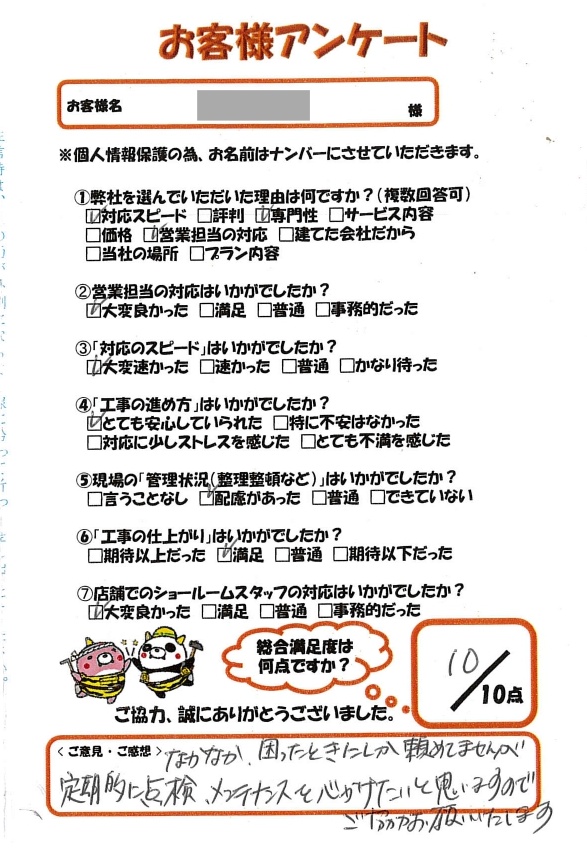 お客様アンケート
お客様名 様
※個人情報保護の為、お名前はナンバーにさせていただきます。
①弊社を選んでいただいた理由は何ですか?(複数回答可)
☑対応スピード □評判 ☑専門性 □サービス内容
□価格 ☑営業担当の対応 □建てた会社だから
□当社の場所 □プラン内容
②営業担当の対応はいかがでしたか?
☑大変良かった □満足 □普通 □事務的だった
③「対応のスピード」はいかがでしたか?
☑大変速かった □速かった □普通 □かなり待った
④「工事の進め方」はいかがでしたか?
☑とても安心していられた □特に不安はなかった
□対応に少しストレスを感じた □とても不満を感じた
⑤現場の「管理状況(整理整頓など)」はいかがでしたか?
□言うことなし ☑配慮があった □普通 □できていない
⑥「工事の仕上がり」はいかがでしたか?
□期待以上だった ☑満足 □普通 □期待以下だった
⑦店舗でのショールームスタッフの対応はいかがでしたか?
☑大変良かった □満足 □普通 □事務的だった
総合満足度は
何点ですか?
10/10点
ご協力、誠にありがとうございました。
<ご意見・ご感想> なかなか、困ったときにしか頼めてませんが
定期的に点検、メンテナンスを心がけたいと思いますので
ご協力お願いいたします